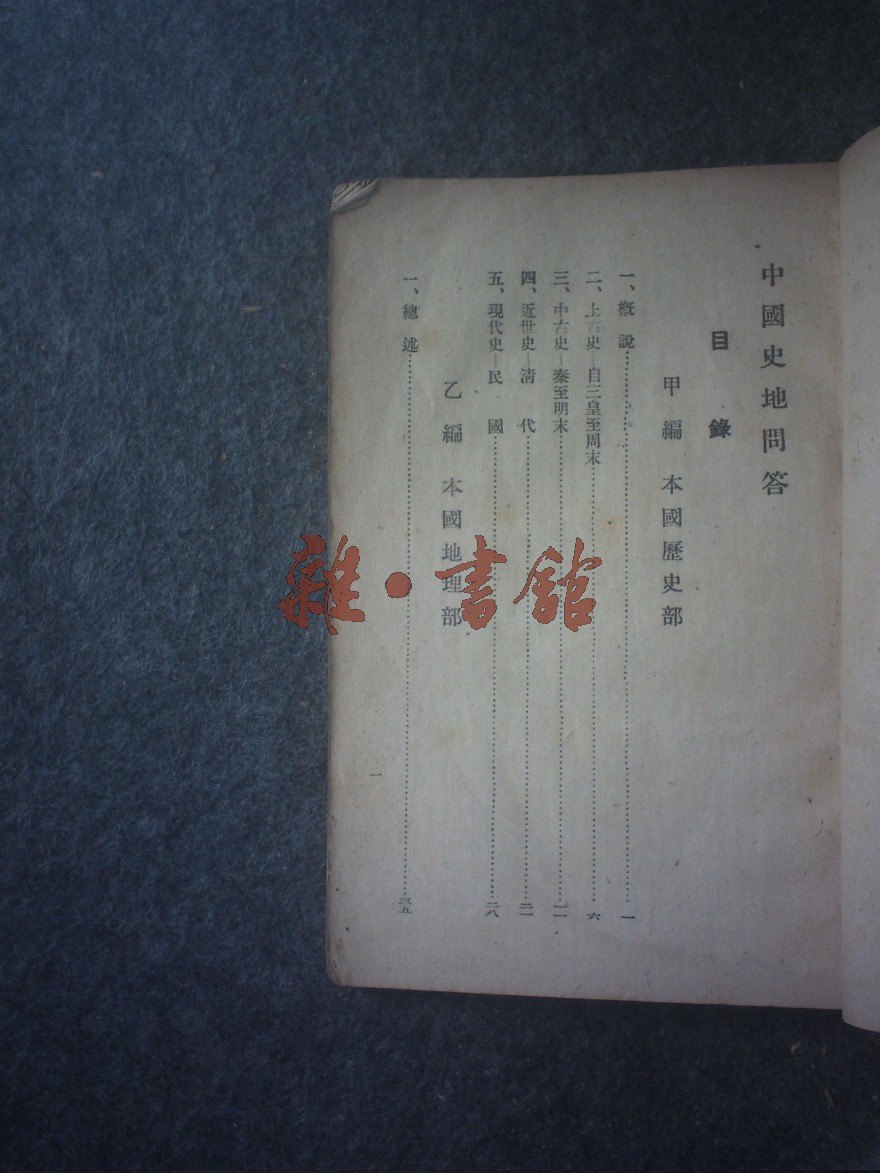 中國史地問答
目錄
甲編 本國歷史部
一、概說……一
二、上古史—自三皇至周末……六
三、中古史—秦至明末……一一
四、近世史—清代……二一
五、現代史—民國……二八
乙編 本國地理部
一、總述……三五
一
雜·書館